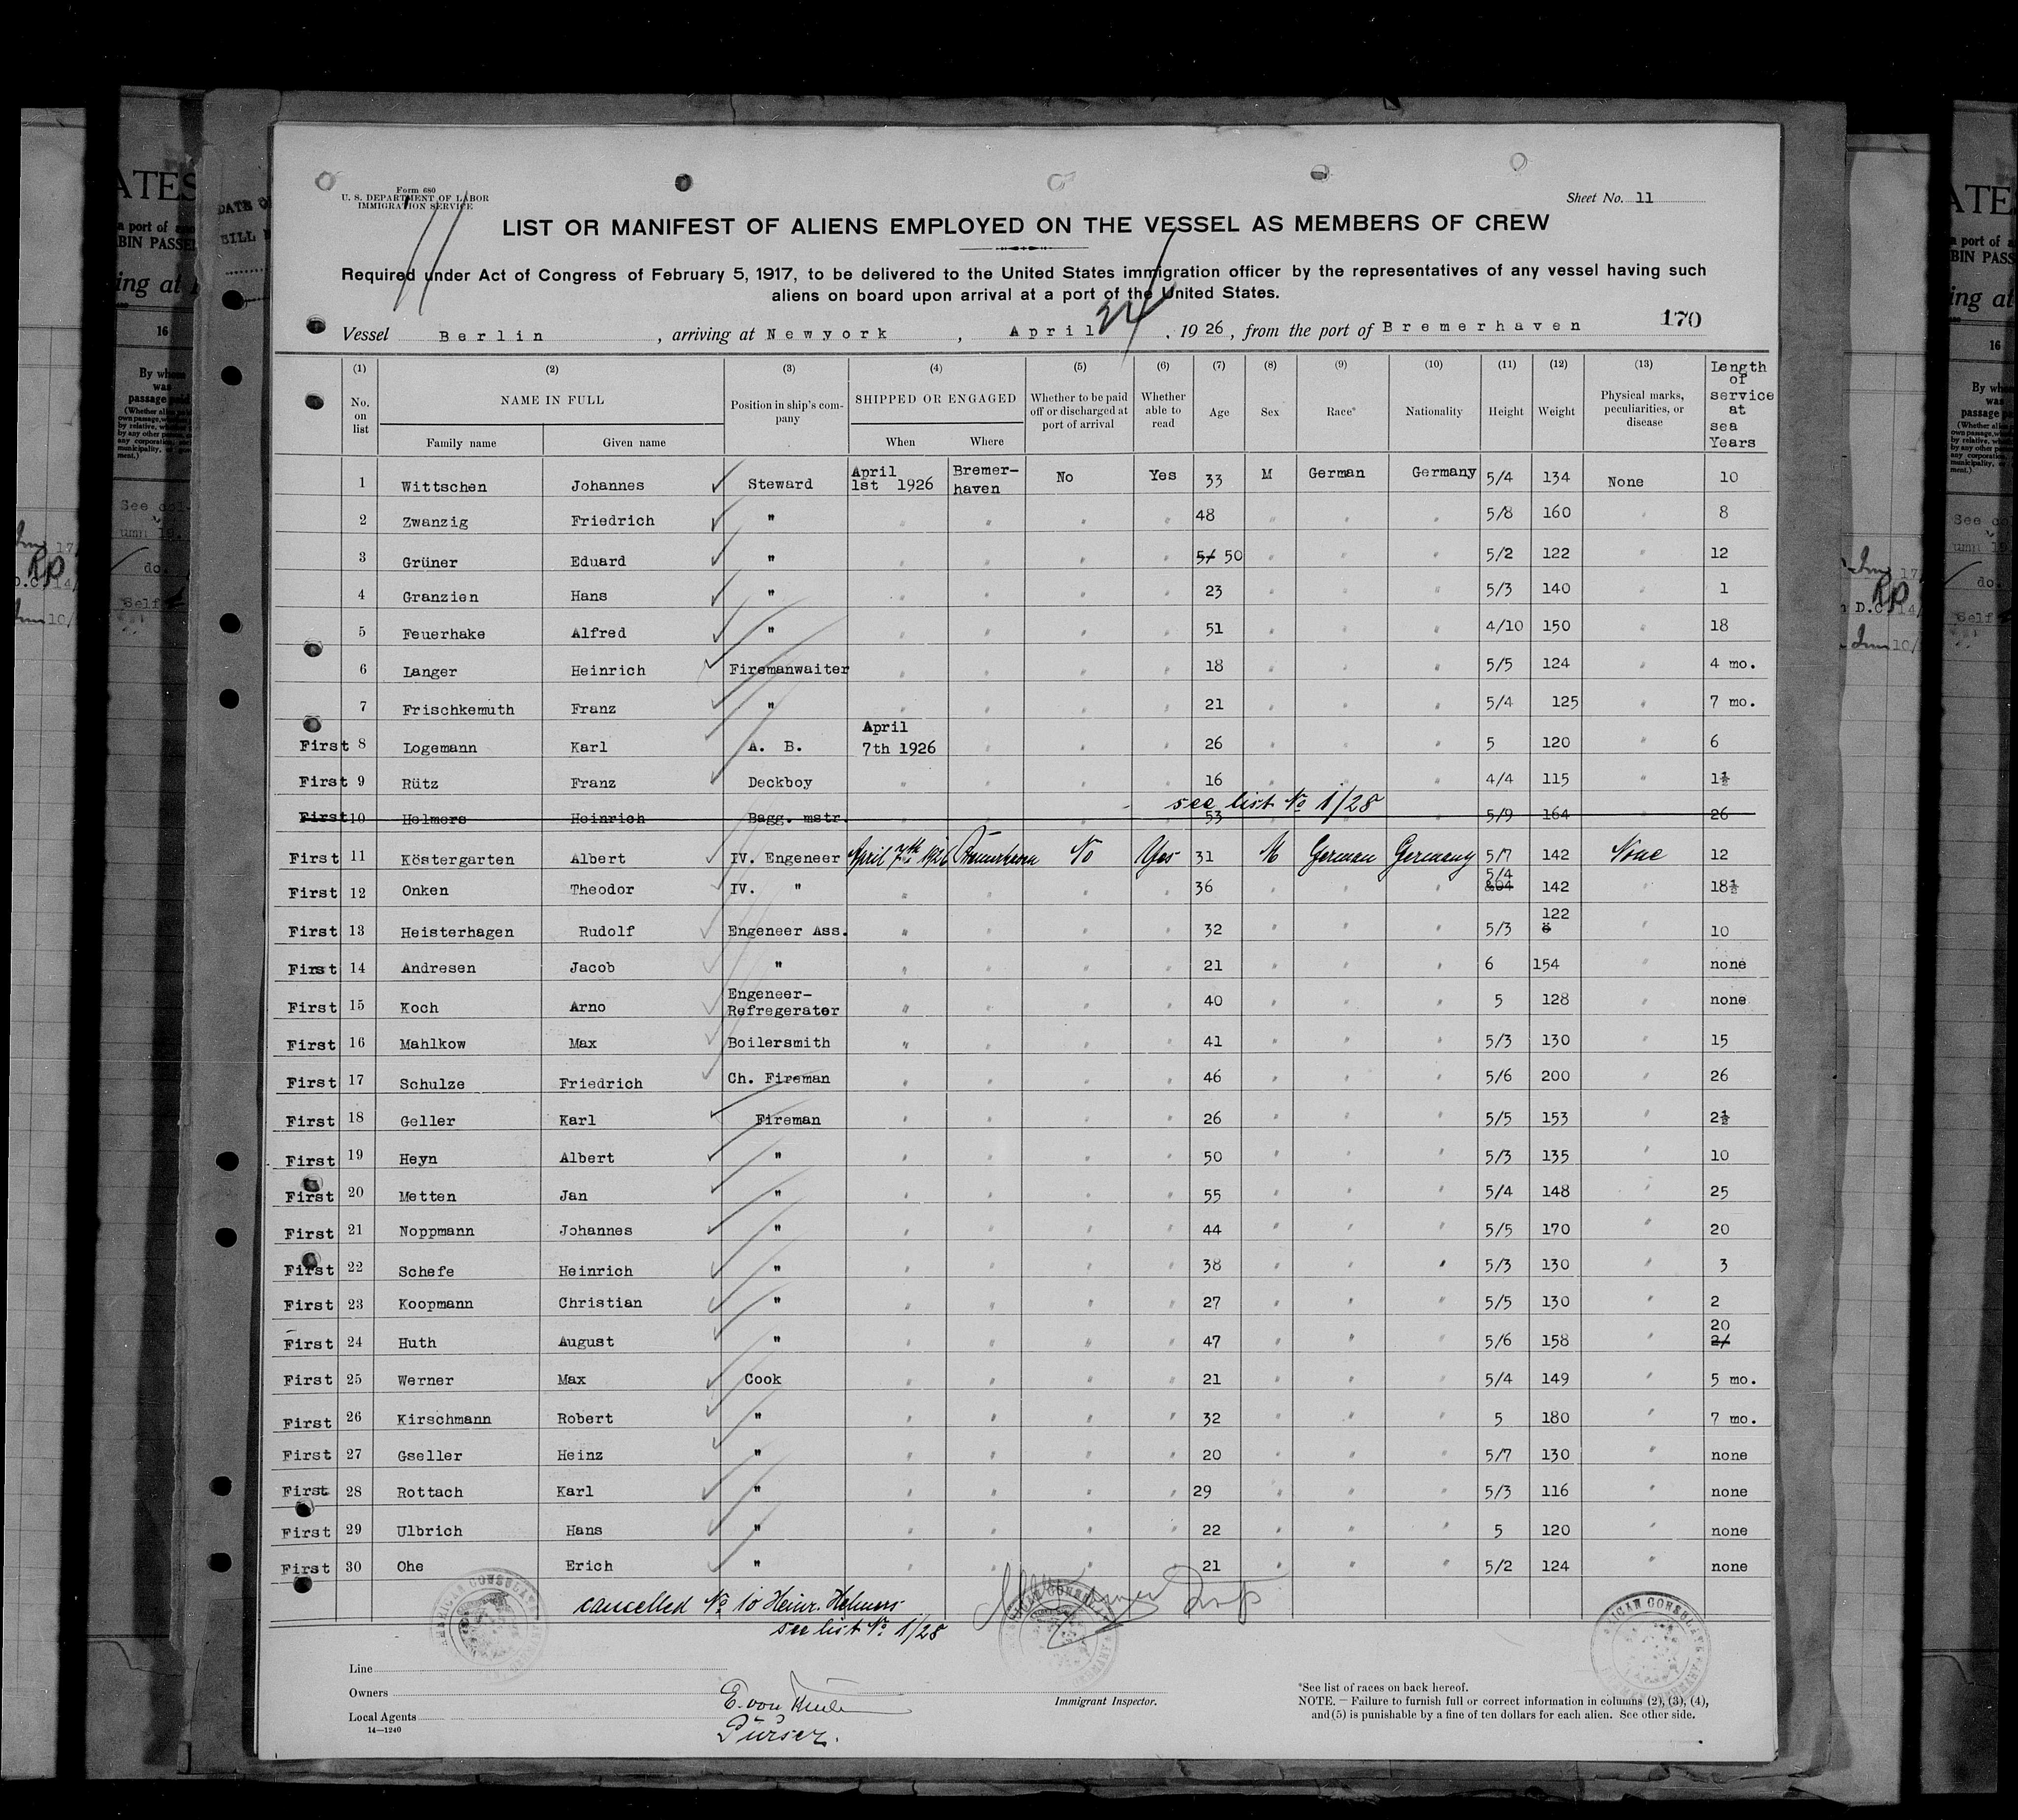 Form 680
U. S. DEPARTMENT OF LABOR
IMMIGRATION SERVICE
Sheet No. 11
LIST OR MANIFEST OF ALIENS EMPLOYED ON THE VESSEL AS MEMBERS OF CREW
Required under Act of Congress of February 5, 1917, to be delivered to the United States immigration officer by the representatives of any vessel having such
aliens on board upon arrival at a port of the United States.
Vessel Berlin, arriving at Newyork, April 24, 1926, from the port of Bremerhaven 170
(1) (2) (3) (4) (5) (6) (7) (8) (9) (10) (11) (12) (13) Length of service at sea Years
No. on list NAME IN FULL Position in ship's company SHIPPED OR ENGAGED Whether to be paid off or discharged at port of arrival Whether able to read Age Sex Race* Nationality Height Weight Physical marks, peculiarities, or disease
Family name Given name When Where
1 Wittschen Johannes Steward April 1st 1926 Bremer-haven No Yes 33 M German Germany 5/4 134 None 10
2 Zwanzig Friedrich " " " " " 48 " " " 5/8 160 " 8
3 Grüner Eduard " " " " " 51 50 " " " 5/2 122 " 12
4 Granzien Hans " " " " " 23 " " " 5/3 140 " 1
5 Feuerhake Alfred " " " " " 51 " " " 4/10 150 " 18
6 Langer Heinrich Firemanwaiter " " " " 18 " " " 5/5 124 " 4 mo.
7 Frischkemuth Franz " " " " " 21 " " " 5/4 125 " 7 mo.
First 8 Logemann Karl A. B. April 7th 1926 " " " 26 " " " 5 120 " 6
First 9 Rütz Franz Deckboy " " " " 16 " " " 4/4 115 " 1½
see list No 1/28
First 10 Helmers Heinrich Bagg. mstr. 53 5/9 164 26
First 11 Köstergarten Albert IV. Engeneer April 7th 1926 Bremerhaven No Yes 31 M German Germany 5/7 142 None 12
First 12 Onken Theodor IV. " " " " " 36 " " " 5/4 142 " 18½
First 13 Heisterhagen Rudolf Engeneer Ass. " " " " 32 " " " 5/3 122 " 10
First 14 Andresen Jacob " " " " " 21 " " " 6 154 " none
First 15 Koch Arno Engeneer-Refregerator " " " " 40 " " " 5 128 " none
First 16 Mahlkow Max Boilersmith " " " " 41 " " " 5/3 130 " 15
First 17 Schulze Friedrich Ch. Fireman " " " " 46 " " " 5/6 200 " 26
First 18 Geller Karl Fireman " " " " 26 " " " 5/5 153 " 2½
First 19 Heyn Albert " " " " " 50 " " " 5/3 135 " 10
First 20 Metten Jan " " " " " 55 " " " 5/4 148 " 25
First 21 Noppmann Johannes " " " " " 44 " " " 5/5 170 " 20
First 22 Schefe Heinrich " " " " " 38 " " " 5/3 130 " 3
First 23 Koopmann Christian " " " " " 27 " " " 5/5 130 " 2
First 24 Huth August " " " " " 47 " " " 5/6 158 " 20 21
First 25 Werner Max Cook " " " " 21 " " " 5/4 149 " 5 mo.
First 26 Kirschmann Robert " " " " " 32 " " " 5 180 " 7 mo.
First 27 Gseller Heinz " " " " " 20 " " " 5/7 130 " none
First 28 Rottach Karl " " " " " 29 " " " 5/3 116 " none
First 29 Ulbrich Hans " " " " " 22 " " " 5 120 " none
First 30 Ohe Erich " " " " " 21 " " " 5/2 124 " none
cancelled No 10 Heinr. Helmers
see list No 1/28
AMERICAN CONSULATE
Line
Owners
Local Agents
14—1240
E. von
Purser.
Immigrant Inspector.
*See list of races on back hereof.
NOTE. — Failure to furnish full or correct information in columns (2), (3), (4),
and (5) is punishable by a fine of ten dollars for each alien. See other side.